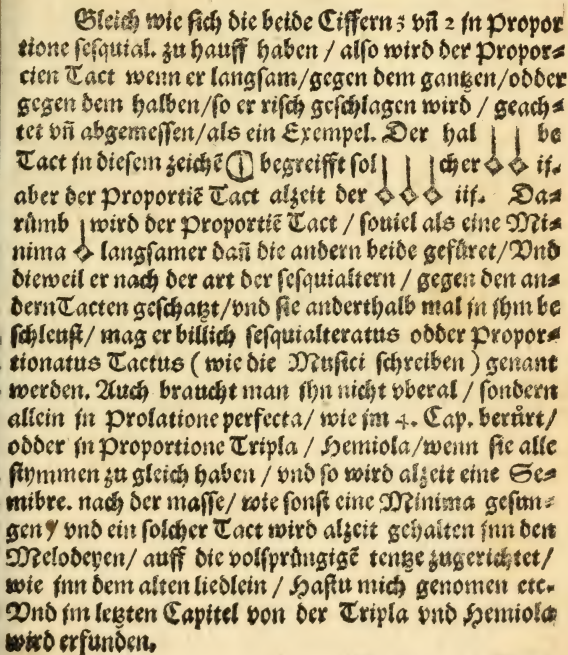 Gleich wie sich die beide Ciffern 3 vñ 2 in Propor
tione sesquial. zu hauff haben / also wird der Propor⸗
cien Tact wenn er langsam/gegen dem gantzen/odder
gegen dem halben/so er risch geschlagen wird / geach⸗
tet vñ abgemessen/als ein Exempel. Der hal be
Tact in diesem zeichē begreifft sol cher ij.
aber der Proportiē Tact alzeit der iij. Da⸗
rümb wird der Proportiē Tact / souiel als eine Mi⸗
nima langsamer dañ die andern beide gefüret/Vnd
dieweil er nach der art der sesquialtern / gegen den an⸗
dern Tacten geschatzt/vnd sie anderthalb mal in ihm be
schleust/ mag er billich sesquialteratus odder Propor⸗
tionatus Tactus ( wie die Musici schreiben ) genant
werden. Auch braucht man ihn nicht vberal / sondern
allein in Prolatione perfecta/ wie im 4. Cap. berürt/
odder in Proportione Tripla / Hemiola/wenn sie alle
stymmen zu gleich haben / vnd so wird alzeit eine Se⸗
mibre. nach der masse/ wie sonst eine Minima gesun⸗
gen/ vnd ein solcher Tact wird alzeit gehalten inn den
Melodeyen/ auff die volsprüngigē tentze zugerichtet/
wie inn dem alten liedlein / Hastu mich genomen etc.
Vnd im letzten Capitel von der Tripla vnd Hemiola
wird erfunden.